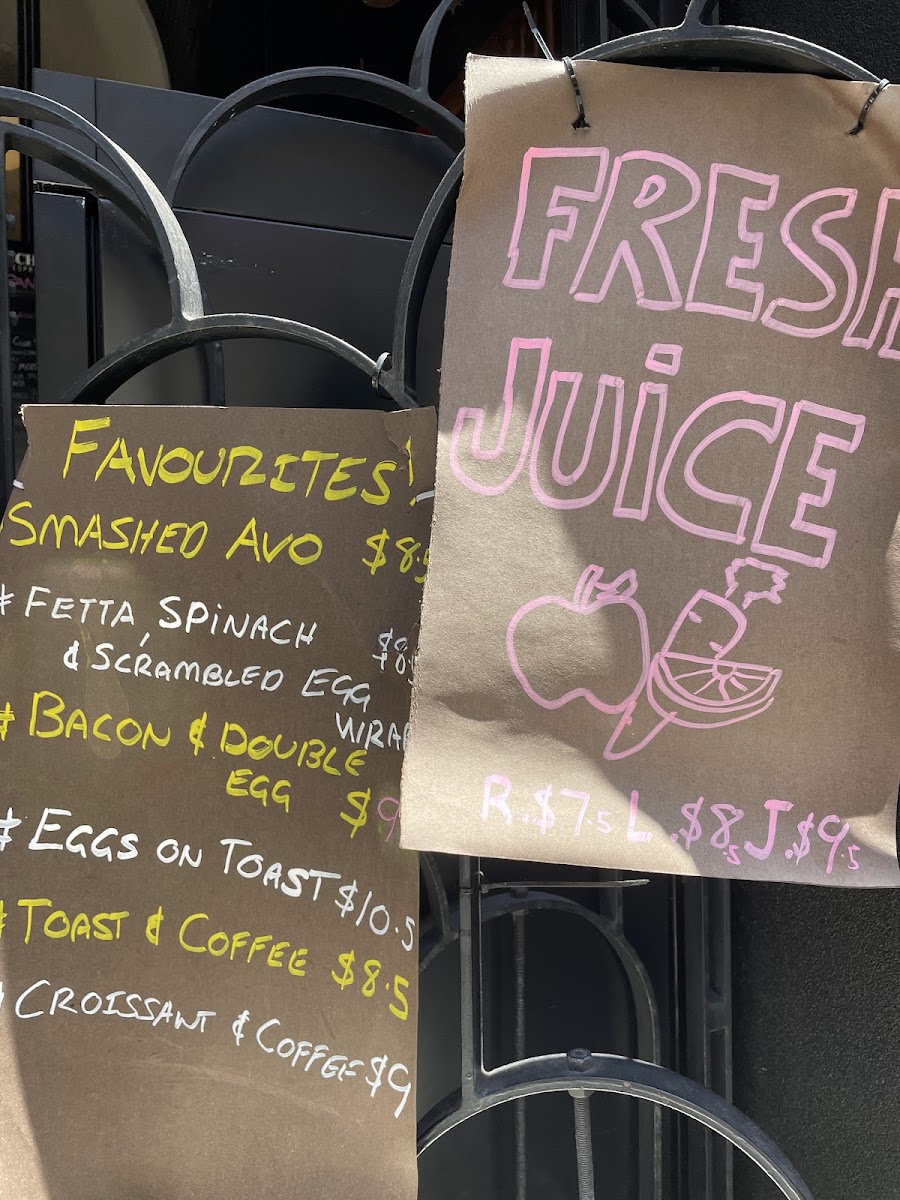 FAVOURITES!
SMASHED AVO $8.5
# FETTA, SPINACH
& SCRAMBLED EGG
WRAP
# BACON & DOUBLE
EGG $9
# EGGS ON TOAST $10.5
# TOAST & COFFEE $8.5
# CROISSANT & COFFEE $9
FRESH
JUiCE
R.$7.5 L.$8.5 J.$9.5